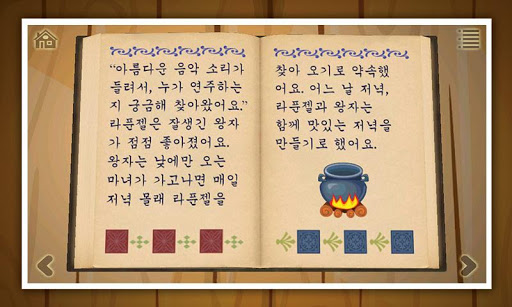 “아름다운 음악 소리가
들려서, 누가 연주하는
지 궁금해 찾아왔어요.”
라푼젤은 잘생긴 왕자
가 점점 좋아졌어요.
왕자는 낮에만 오는
마녀가 가고나면 매일
저녁 몰래 라푼젤을
찾아 오기로 약속했
어요. 어느 날 저녁,
라푼젤과 왕자는
함께 맛있는 저녁을
만들기로 했어요.